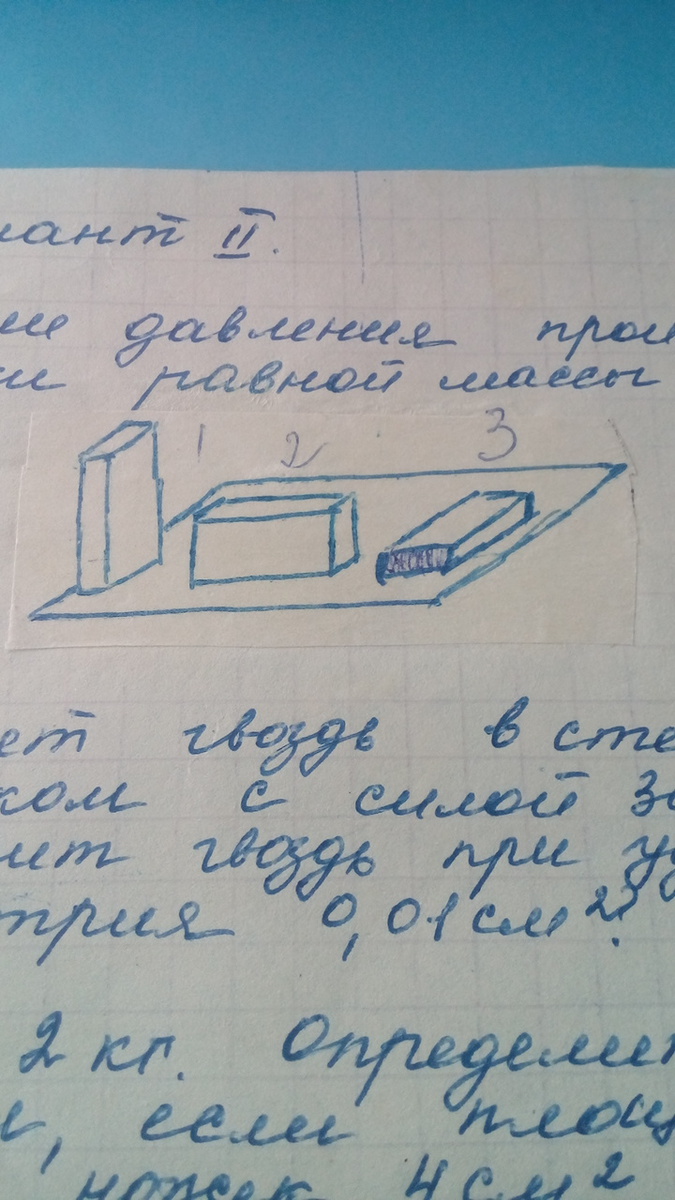 иант II.
ие давления прои
ии равной массы
1 2 3
ет гвоздь в сте
ком с силой 30
ит гвоздь при уд
трия 0,01 см²?
2 кг. Определит
и, если площ
ножек 4 см²